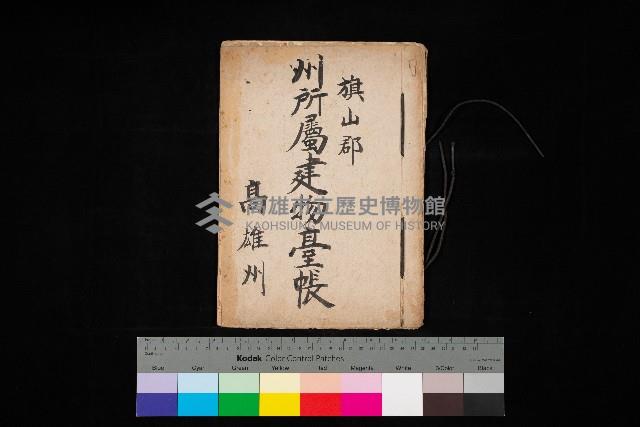 旗山郡
州所屬建物臺帳
高雄州
高雄市立歷史博物館
KAOHSIUNG MUSEUM OF HISTORY
Kodak Color Control Patches
Blue Cyan Green Yellow Red Magenta White 3/Color Black